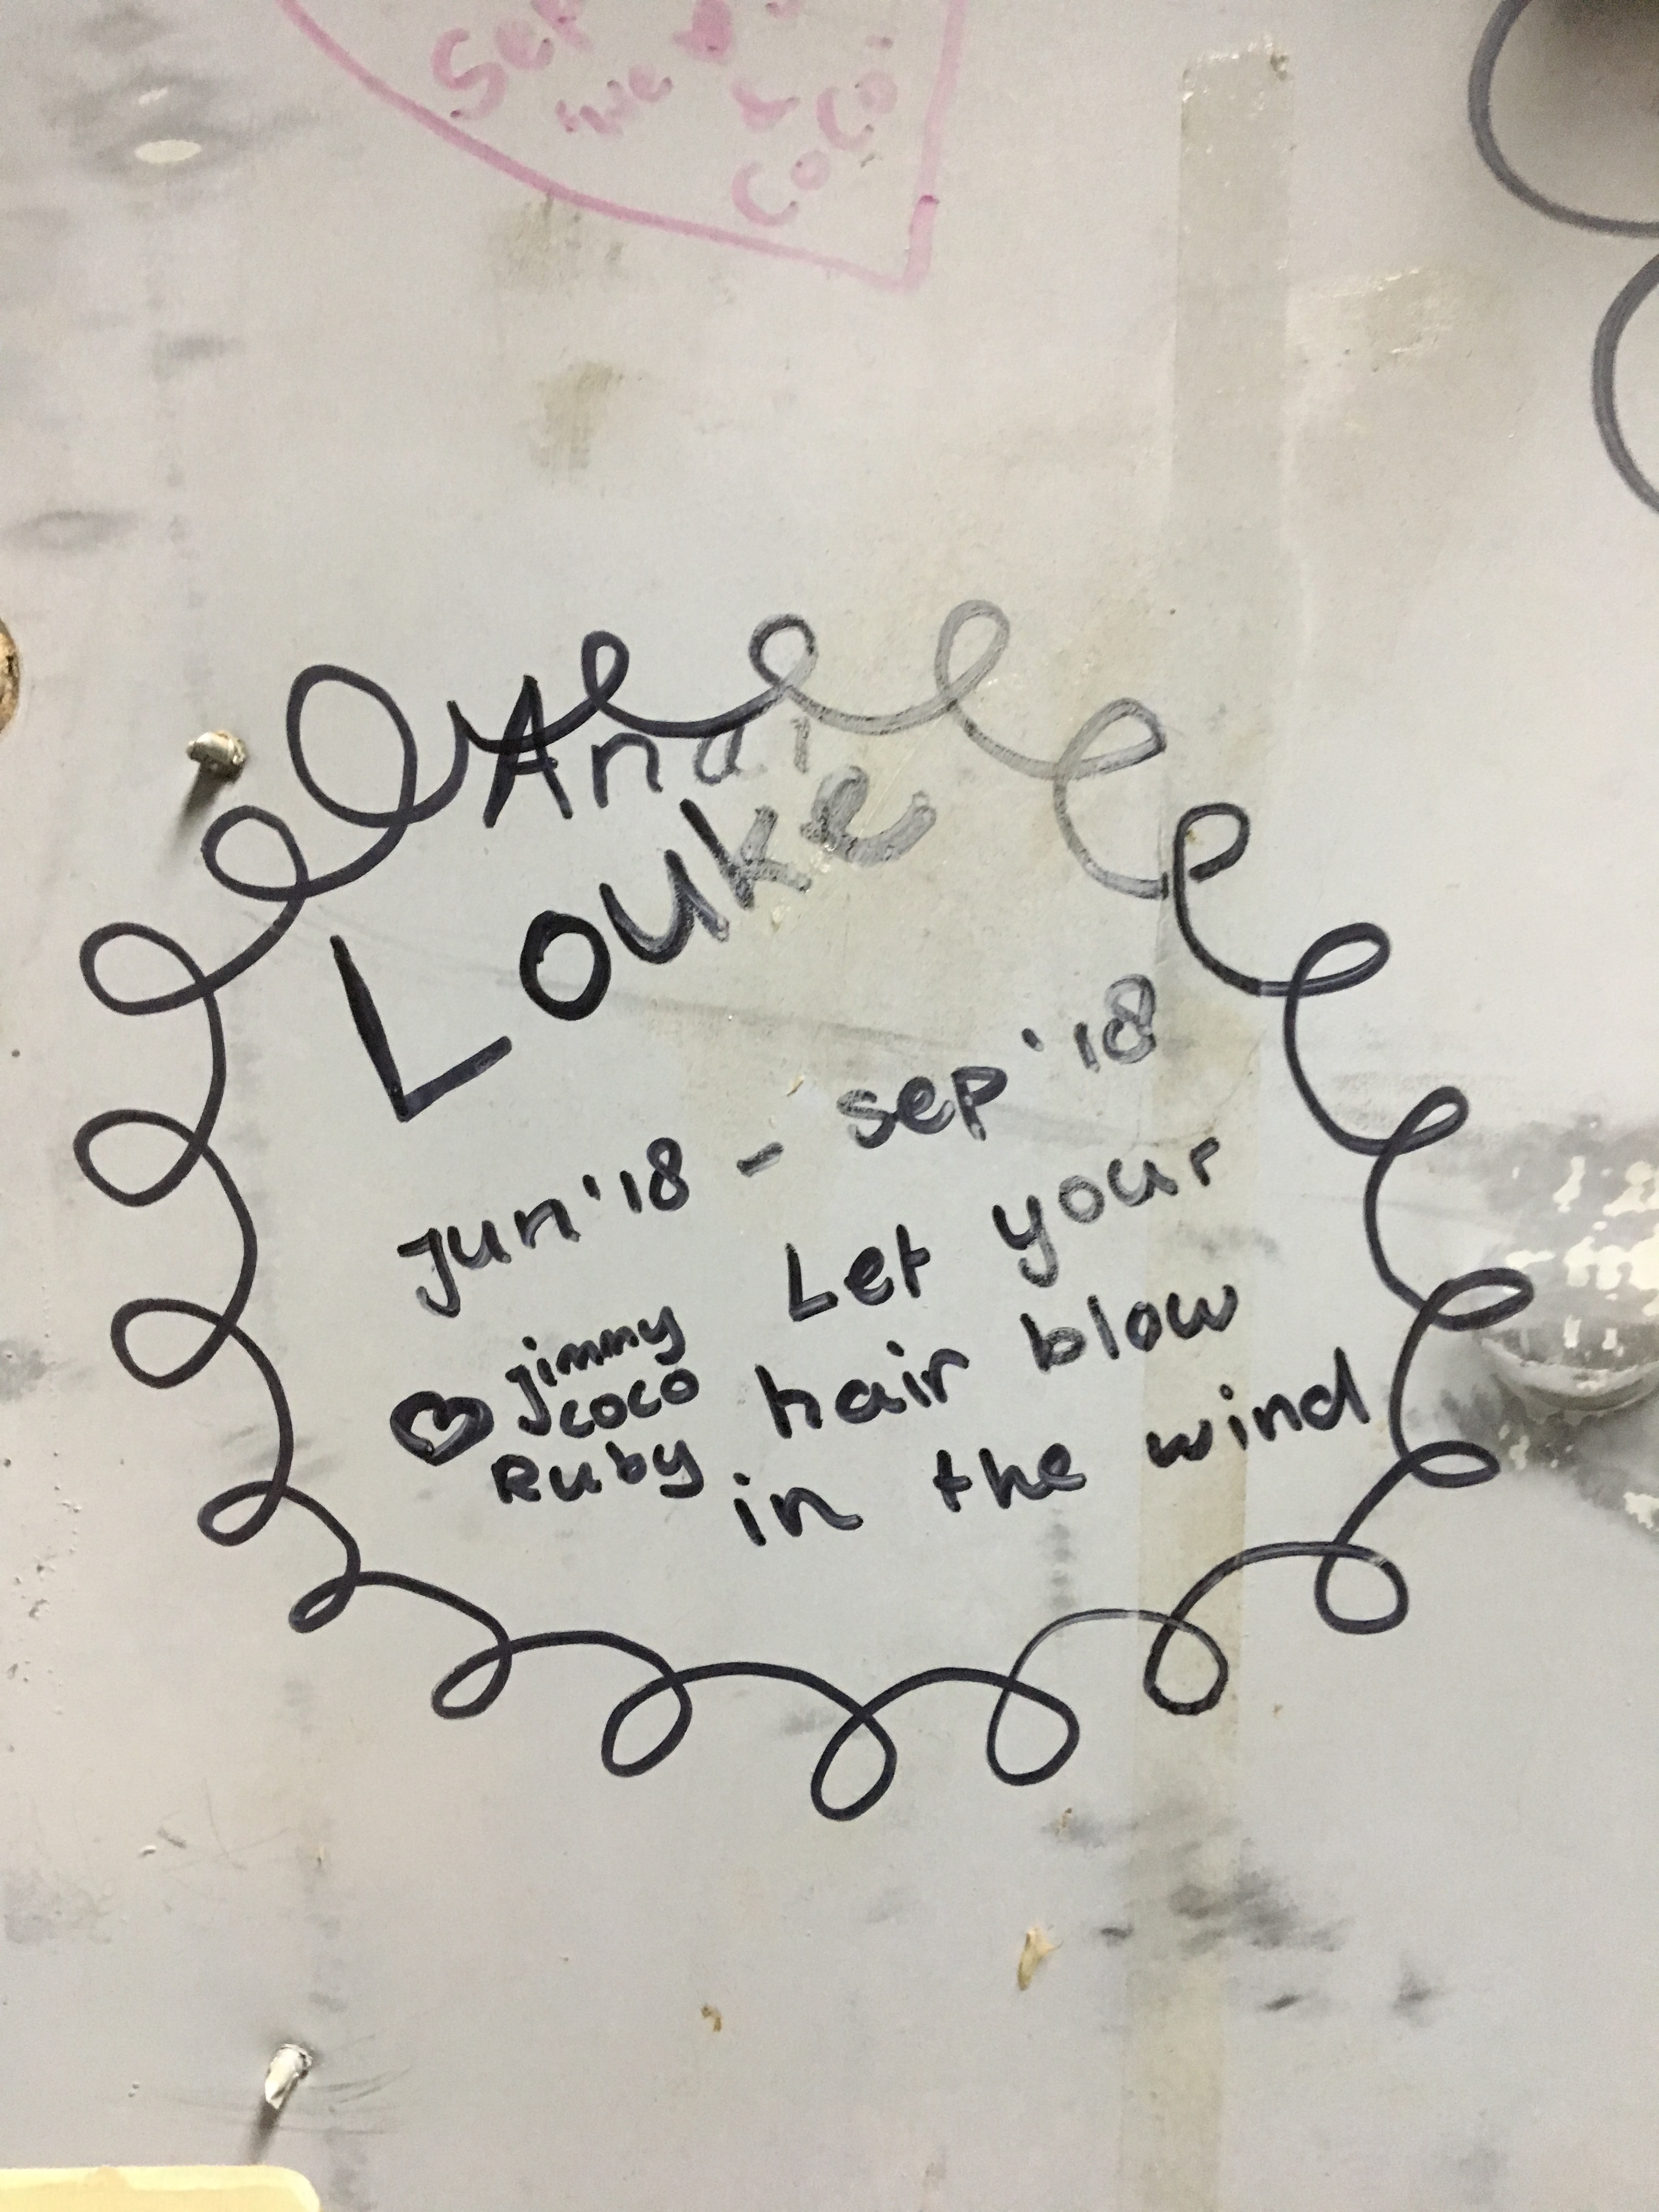 Sep
& 
Coco
Anai
Louke
Jun'18 - sep '18
♡ Jimmy
Coco
Ruby
Let your
hair blow
in the wind